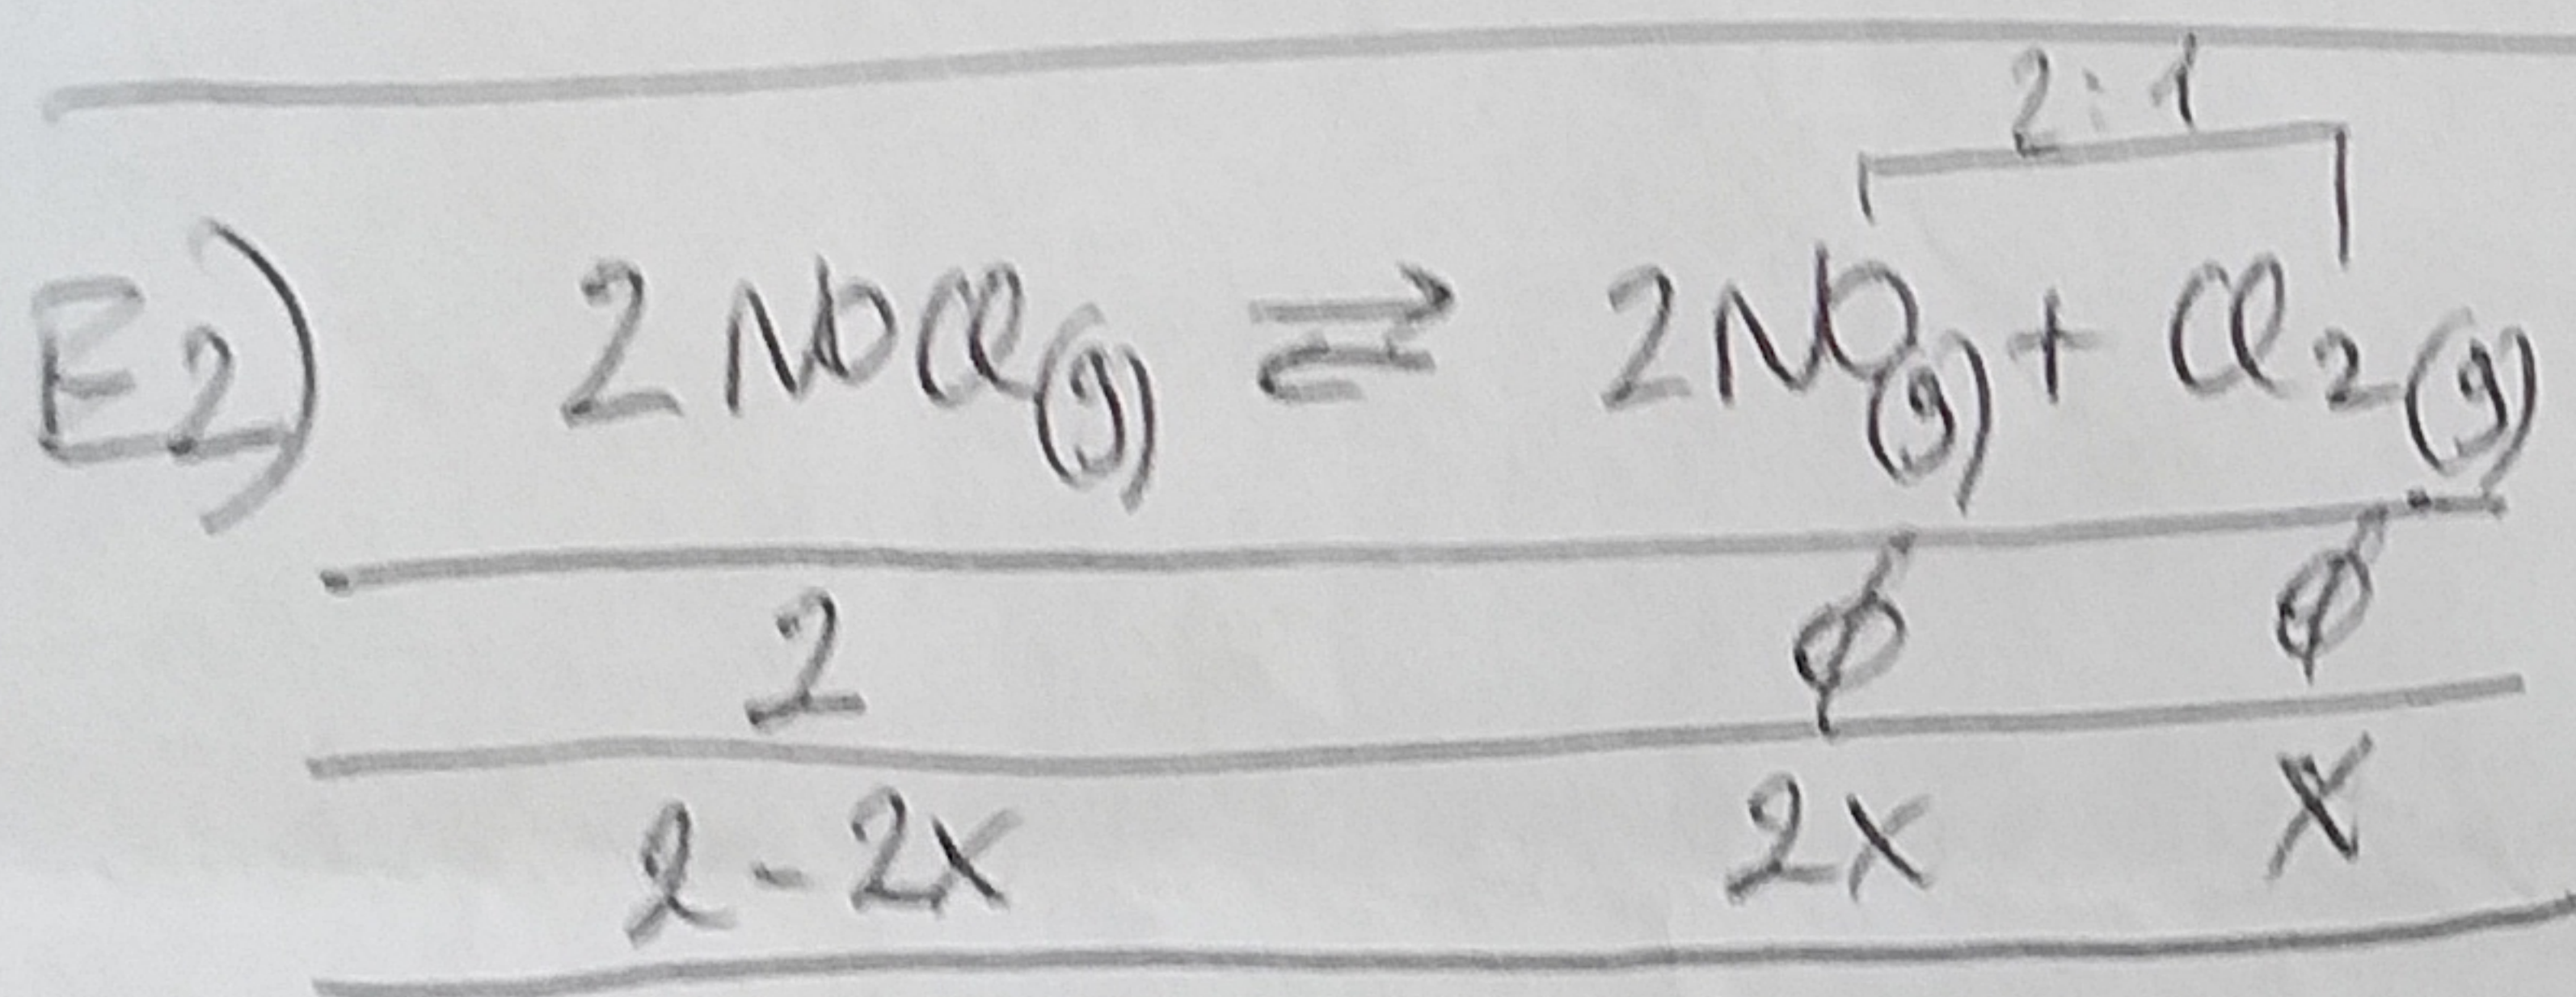 2:1
E2) 2NOCl(g) ⇄ 2NO(g) + Cl2(g)
2 ϕ ϕ
2-2x 2x x